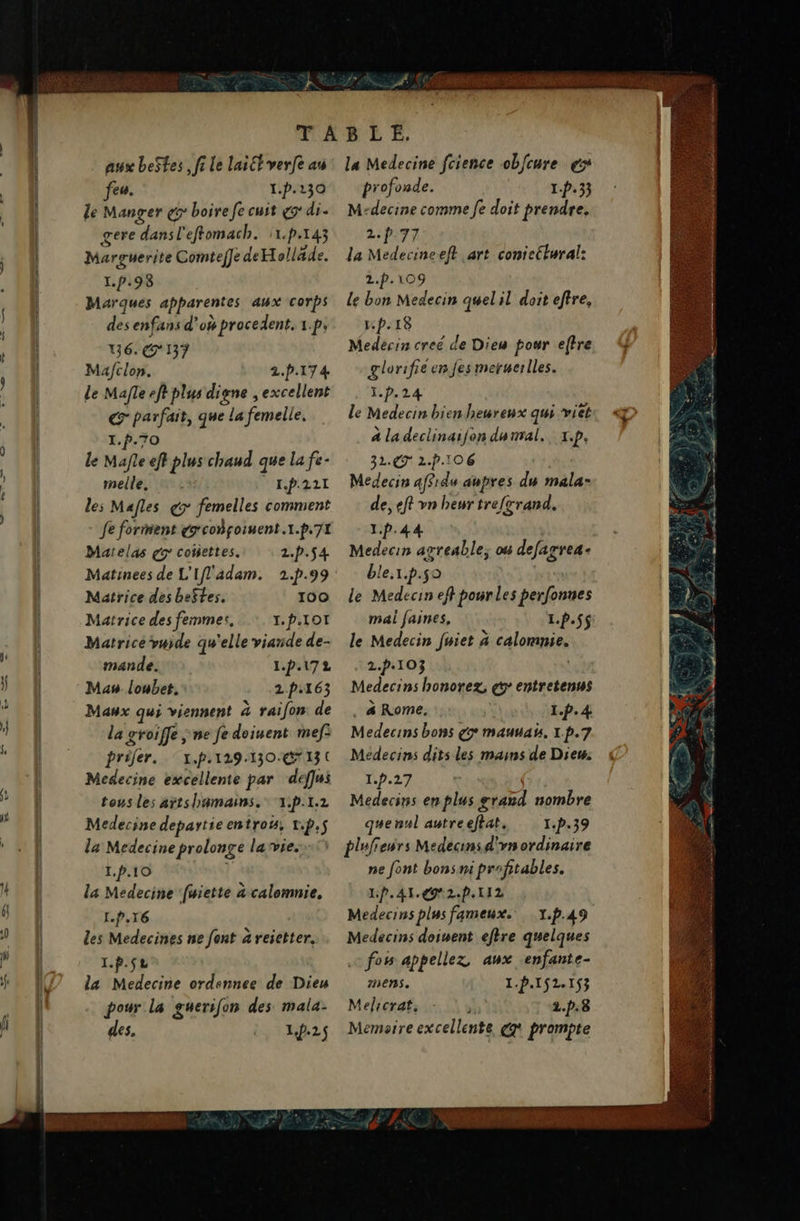 TABLE.
aux bestes, si le laict versé au
feu. 1.p.230
le Manger & boire se cuit & di-
gere dans l'estomach. 1.p.143
Marguerite Comtesse de Hollãde.
1.p.98
Marques apparentes aux corps
des enfans d'où procedent. 1.p.
136. & 137
Masclon. 2.p.174
le Masle est plus digne, excellent
& parfait, que la femelle.
1.p.70
le Masle est plus chaud que la fe-
melle. 1.p.221
les Masles & femelles comment
se forment & conçoiuent. 1.p.71
Matelas & coüettes. 2.p.54
Matinees de L'Isl'adam. 2.p.99
Matrice des bestes. 100
Matrice des femmes. 1.p.101
Matrice vuide qu'elle viande de-
mande. 1.p.171
Mau loubet. 2.p.163
Maux qui viennent à raison de
la groisse, ne se doiuent mes-
priser. 1.p.129.130.& 131
Medecine excellente par dessus
tous les arts humains. 1.p.1.2
Medecine departie en trois. 1.p.5
la Medecine prolonge la vie.
1.p.10
la Medecine suiette à calomnie.
1.p.16
les Medecines ne sont à reietter.
1.p.51
la Medecine ordonnee de Dieu
pour la guerison des mala-
des. 1.p.25
la Medecine science obscure &
profonde. 1.p.33
Medecine comme se doit prendre.
2.p.77
la Medecine est art coniectural.
2.p.109
le bon Medecin quel il doit estre.
1.p.18
Medecin creé de Dieu pour estre
glorifié en ses merueilles.
1.p.24
le Medecin bien heureux qui viẽt
à la declinaison du mal. 1.p.
32.& 2.p.106
Medecin assidu aupres du mala-
de, est vn heur tres grand.
1.p.44
Medecin agreable, ou desagrea-
ble. 1.p.50
le Medecin est pour les personnes
mal saines. 1.p.55
le Medecin suiet à calomnie.
2.p.103
Medecins honorez, & entretenus
à Rome. 1.p.4
Medecins bons & mauuais. 1.p.7
Medecins dits les mains de Dieu.
1.p.27
Medecins en plus grand nombre
que nul autre estat. 1.p.39
plusieurs Medecins d'vn ordinaire
ne sont bons ni profitables.
1.p.41.& 2.p.112
Medecins plus fameux. 1.p.49
Medecins doiuent estre quelques
fois appellez, aux enfante-
mens. 1.p.152.153
Melicrat. 2.p.8
Memoire excellente & prompte